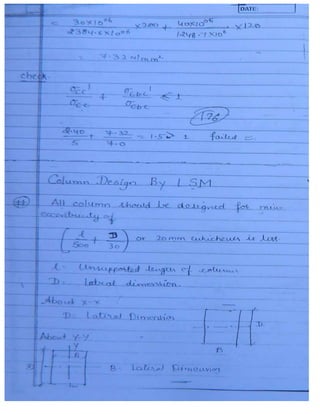 DATE:
= 30×10^06 / 2384.5×10^06 × 200 + 40×10^06 / 1248.7×10^6 × 120
= 7.32 N/mm²
check
σcc' / σcc + σcbc' / σcbc ≤ 1
2.40 / 5 + 7.32 / 7.0 = 1.5 > 1 failed
Column Design By LSM
All column should be designed for min
eccentricity of
(l / 500 + D / 30) or 20mm whichever is less
l - Unsupported length of column
D - Lateral dimension
About x-x
D - Lateral Dimension
D
B
About Y-Y
Y
B
B - Lateral Dimension